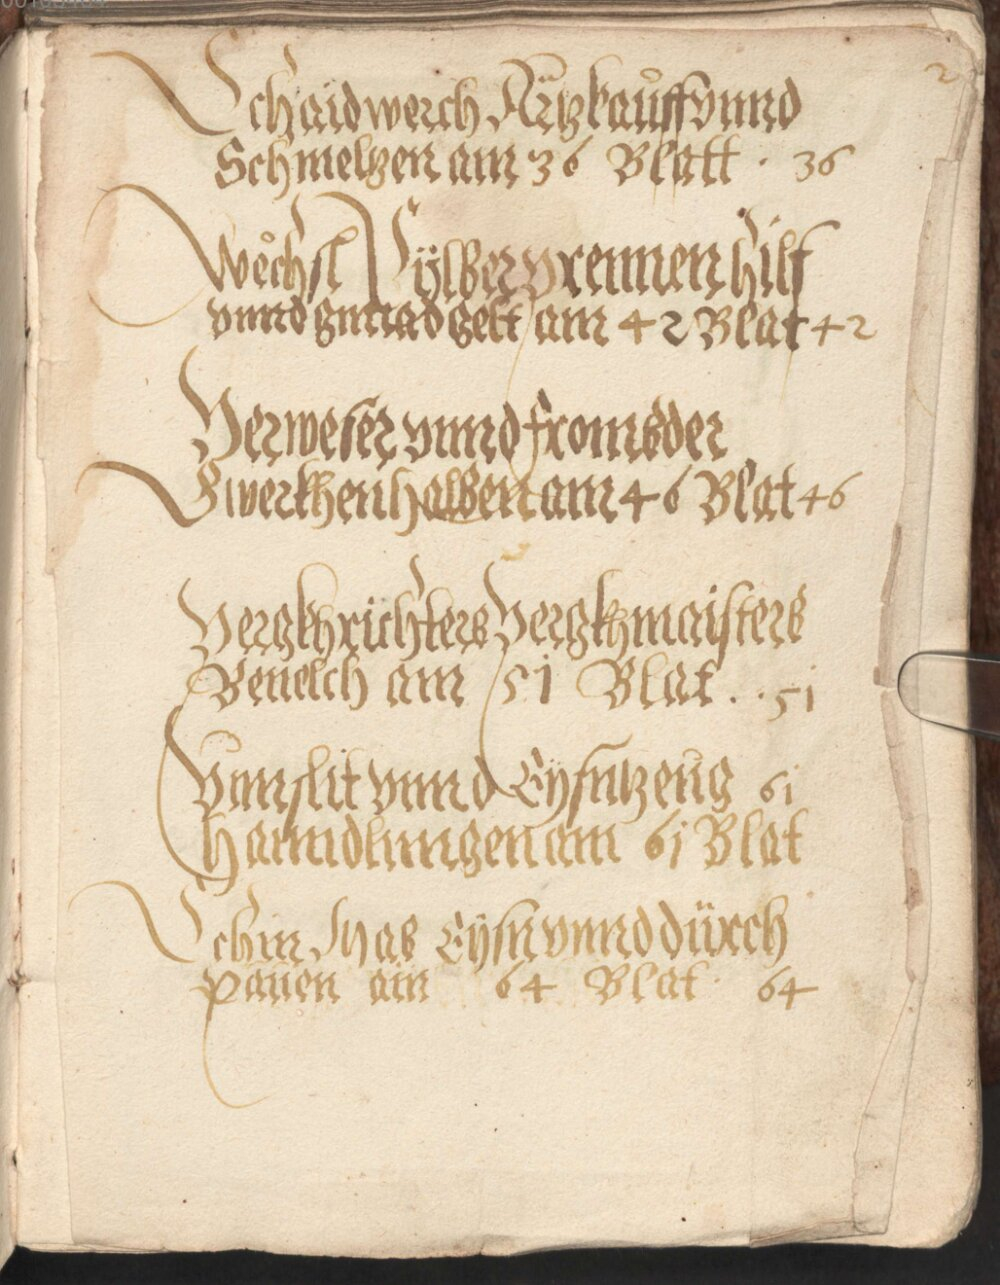 2
Schaidwerch Ärtzkauff vnnd
Schmeltzen am 36 Blatt . 36
Wechsl Sÿlber prennen hilf
vnnd gnnad gelt am 42 Blat 42
Verweser vnnd frombder
Gwerkhen halben am 46 Blat 46
Pergkhrichters Pergkhmaisters
Beuelch am 51 Blat . . 51
Vnnslit vnnd Eÿsntzeug 61
hanndlungen am 61 Blat
Schin Mas Eÿsn vnnd dürch
pauen am 64 Blat . 64